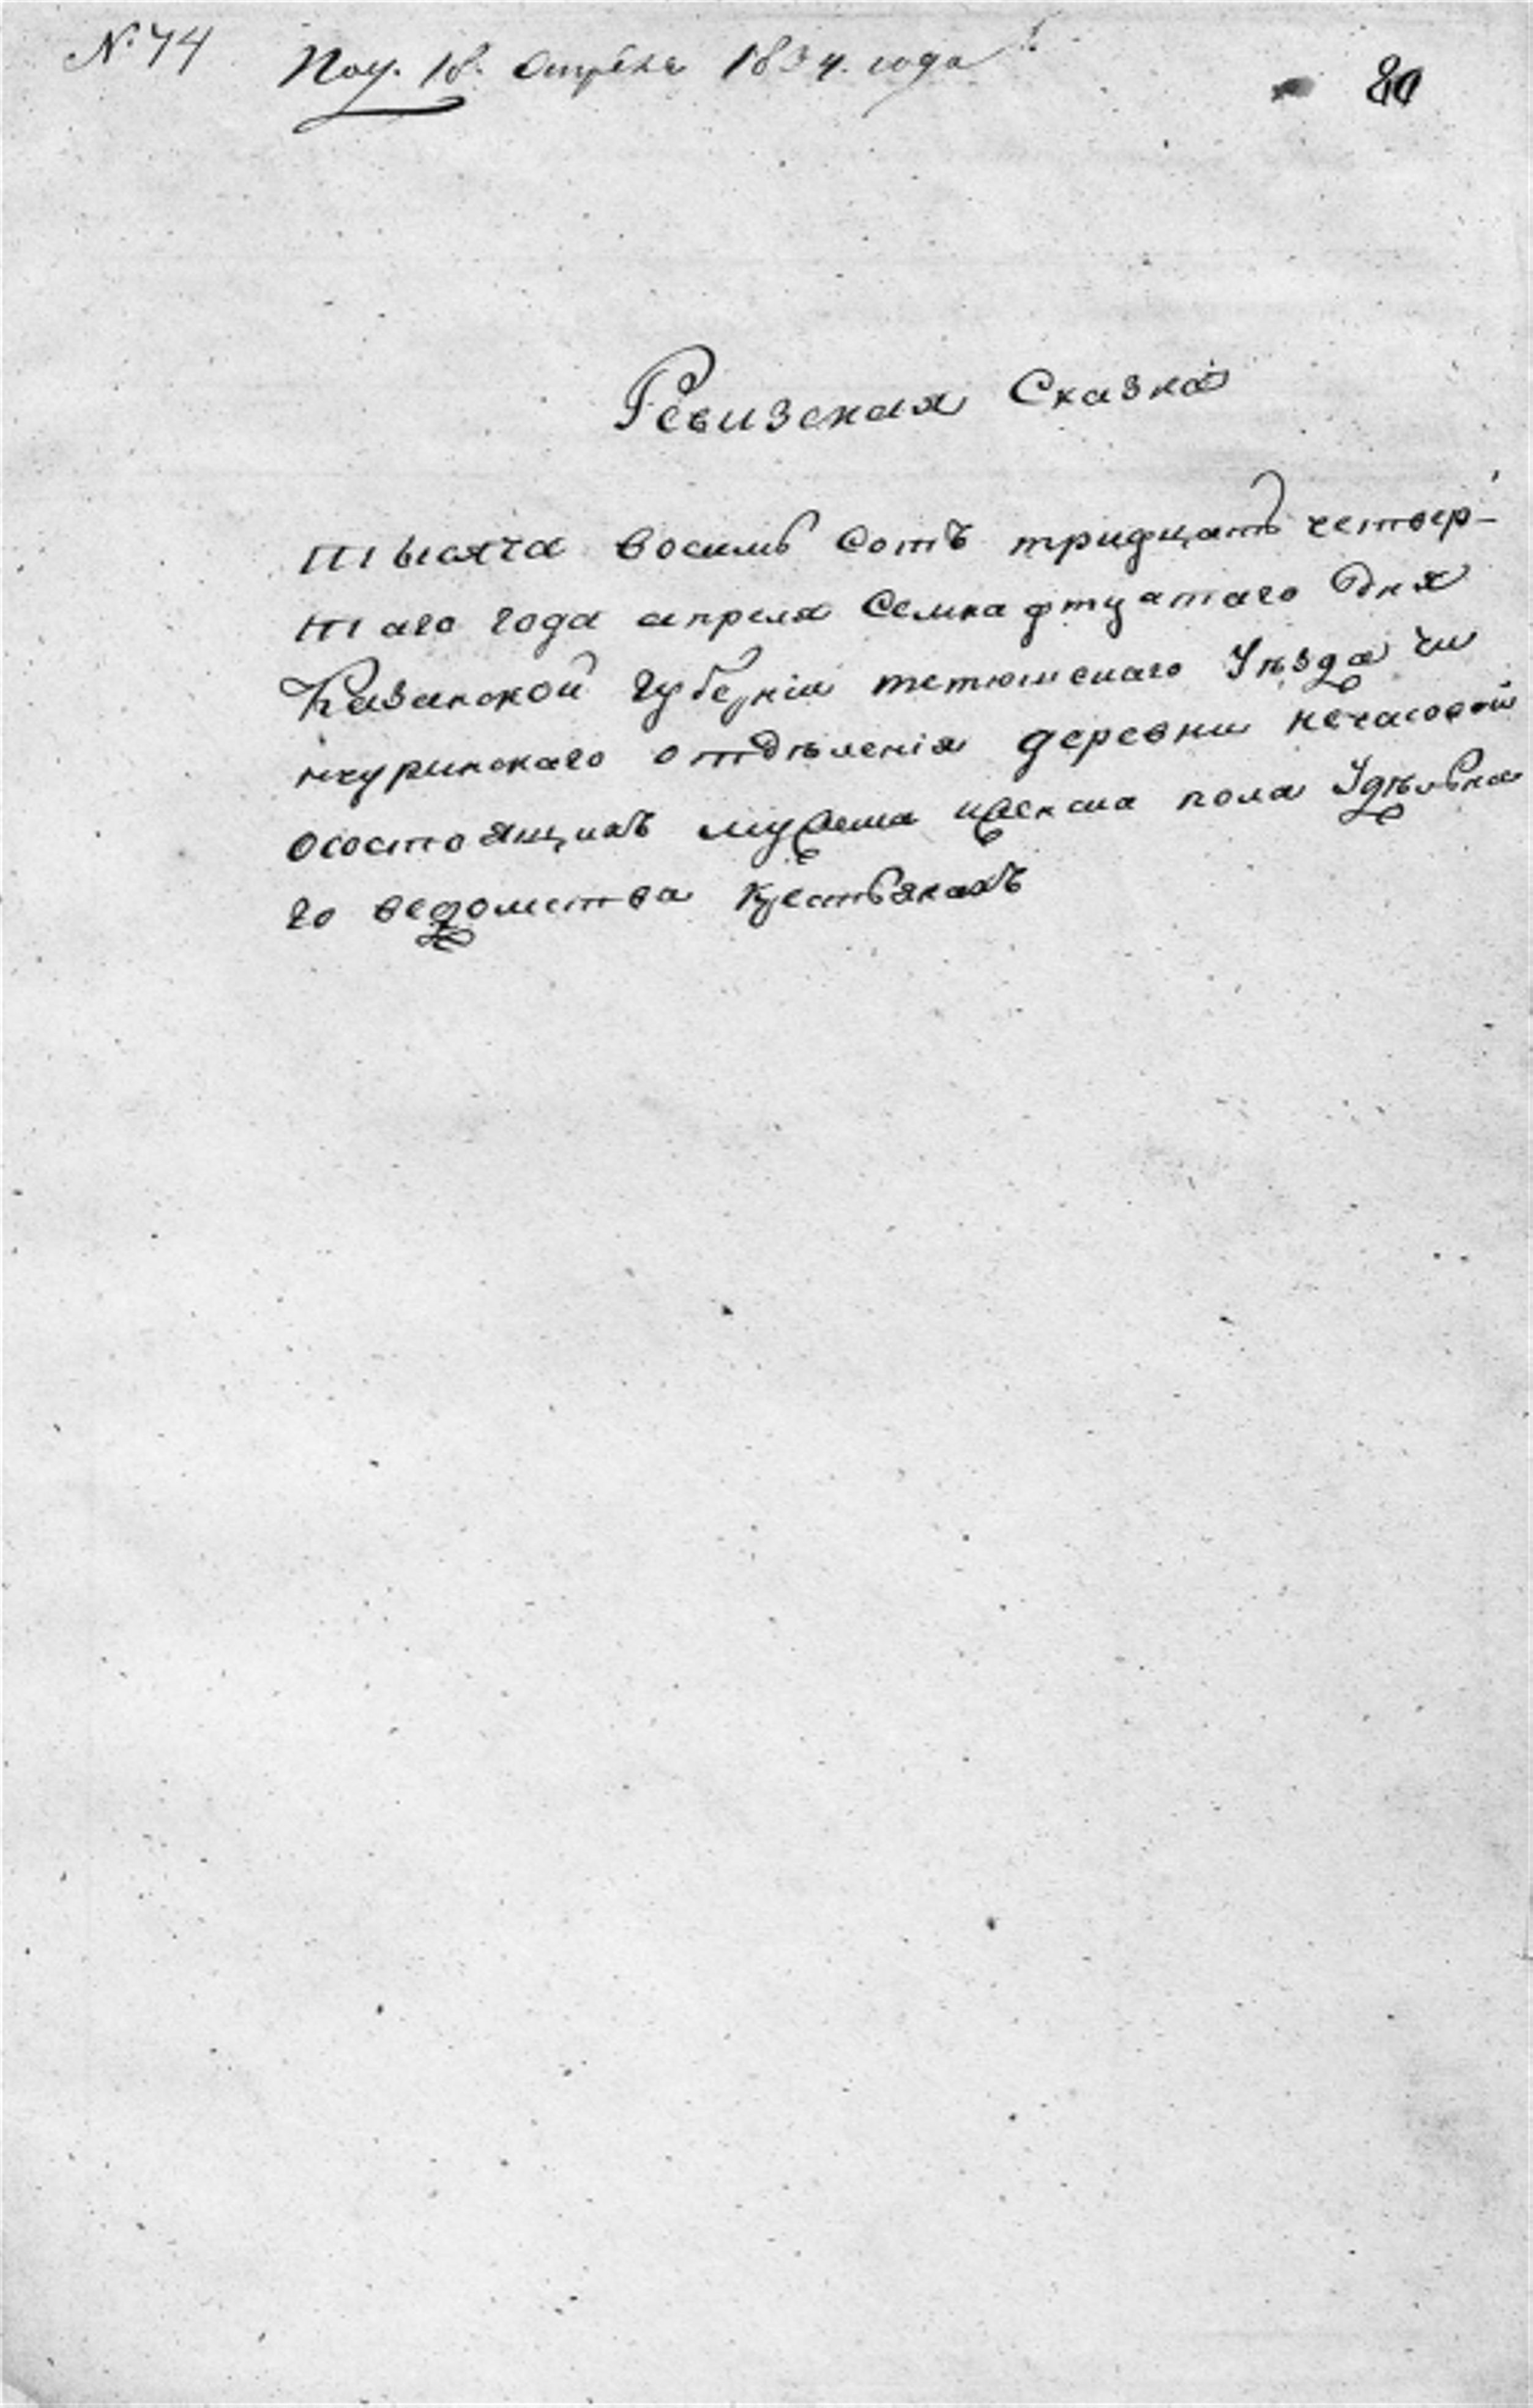 № 74 Пол. 18. Апреля 1834. года 80
Ревизская Сказка
тысяча восемь сотъ тридцать четвер-
таго года апреля Семна дтцатаго дня
Казанской губерніи тетюшскаго Уѣзда чи
нчуринскаго отдѣленія деревни нечасовой
осостоящихъ мужеска иженска пола Удѣльна
го ведомства Крестьянахъ